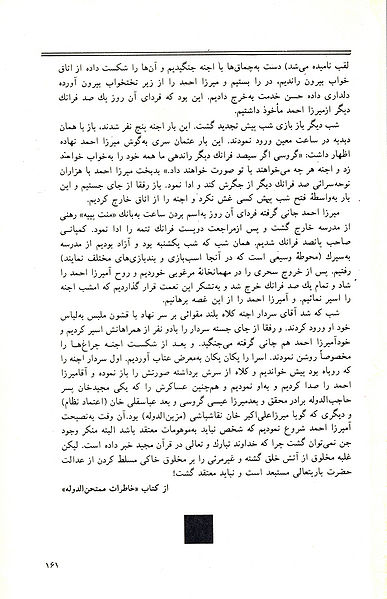 لقب نامیده می‌شد) دست به‌چماق‌ها با اجنه جنگیدیم و آن‌ها را شکست داده از اتاق
خواب بیرون راندیم، در را بستیم و میرزا احمد را از زیر تختخواب بیرون آورده
دلداری داده حسن خدمت به‌خرج دادیم. این بود که فردای آن روز یک صد فرانک
دیگر ازمیرزا احمد مأخوذ داشتیم.
شب دیگر باز بازی شب پیش تجدید گشت. این بار اجنه پنج نفر شدند. باز با همان
دبدبه در ساعت معین ورود نمودند. این بار عثمان سری به‌گوش میرزا احمد نهاده
اظهار داشت: «گروسی اگر سیصد فرانک دیگر راندهی ما همه خود را به‌خواب خواهند
زد و اجنه هر چه می‌خواهند با تو صورت خواهند داد.» بدبخت میرزا احمد با هزاران
نوحه‌سرائی صد فرانک دیگر از جگرش کند و ادا نمود. باز رفقا از جای جستیم و این
بار به‌واسطهٔ فتح شب پیش کسی غش نکرد و اجنه را از اتاق خارج کردیم.
میرزا احمد جانی گرفته فردای آن روز به‌اسم بردن ساعت به‌بانک «منت پییه» رهنی
از مدرسه خارج گشت و پس ازمراجعت دویست فرانک تتمه را ادا نمود. کمپانی
صاحب پانصد فرانک شدیم. همان شب که شب یکشنبه بود و آزاد بودیم از مدرسه
به‌سیرک (محوطهٔ وسیعی است که در آنجا اسب‌بازی و بندبازی‌های مختلف نمایند)
رفتیم. پس از خروج سحری را در مهمانخانهٔ مرغوبی خوردیم و روح آمیرزا احمد را
شاد و تمام یک صد فرانک خرج شد و به‌تشکر این نعمت قرار گذاردیم که امشب اجنه
را اسیر نمائیم. و آمیرزا احمد را از این غصه برهانیم.
شب که شد آقای سردار اجنه کلاه بلند مقوائی بر سر نهاد با قشون ملبس به‌لباس
خود او ورود کردند. و رفقا از جای جسته سردار را بادو نفر از همراهانش اسیر کردیم و
خودآمیرزا احمد هم جانی گرفته می‌جنگید. و بعد از شکست اجنه چراغها را
مخصوصاً روشن نمودند. اسرا را یکان یکان به‌معرض عتاب آوردیم. اول سردار اجنه را
که روباه بود پیش خواندیم و کلاه از سرش برداشته صورتش را باز نموده و آقامیرزا
احمد را صدا کردیم و به‌او نمودیم و هم‌چنین عساکرش را که یکی مجیدخان پسر
حاجب‌الدوله برادر محقق و بعدمیرزا عیسی گروسی و بعد عباسقلی خان (اعتماد نظام)
و دیگری که گویا میرزاعلی‌اکبر خان نقاشباشی (مزین‌الدوله) بود. آن وقت به‌نصیحت
آمیرزا احمد شروع نمودیم که شخص نباید به‌موهومات معتقد باشد البته منکر وجود
جن نمی‌توان گشت چرا که خداوند تبارک و تعالی در قرآن مجید خبر داده است. لیکن
غلبه مخلوق از آتش خلق گشته و غیرمرئی را بر مخلوق خاکی مسلط کردن از عدالت
حضرت باریتعالی مستبعد است و نباید معتقد گشت!
از کتاب «خاطرات ممتحن‌الدوله»
۱۶۱